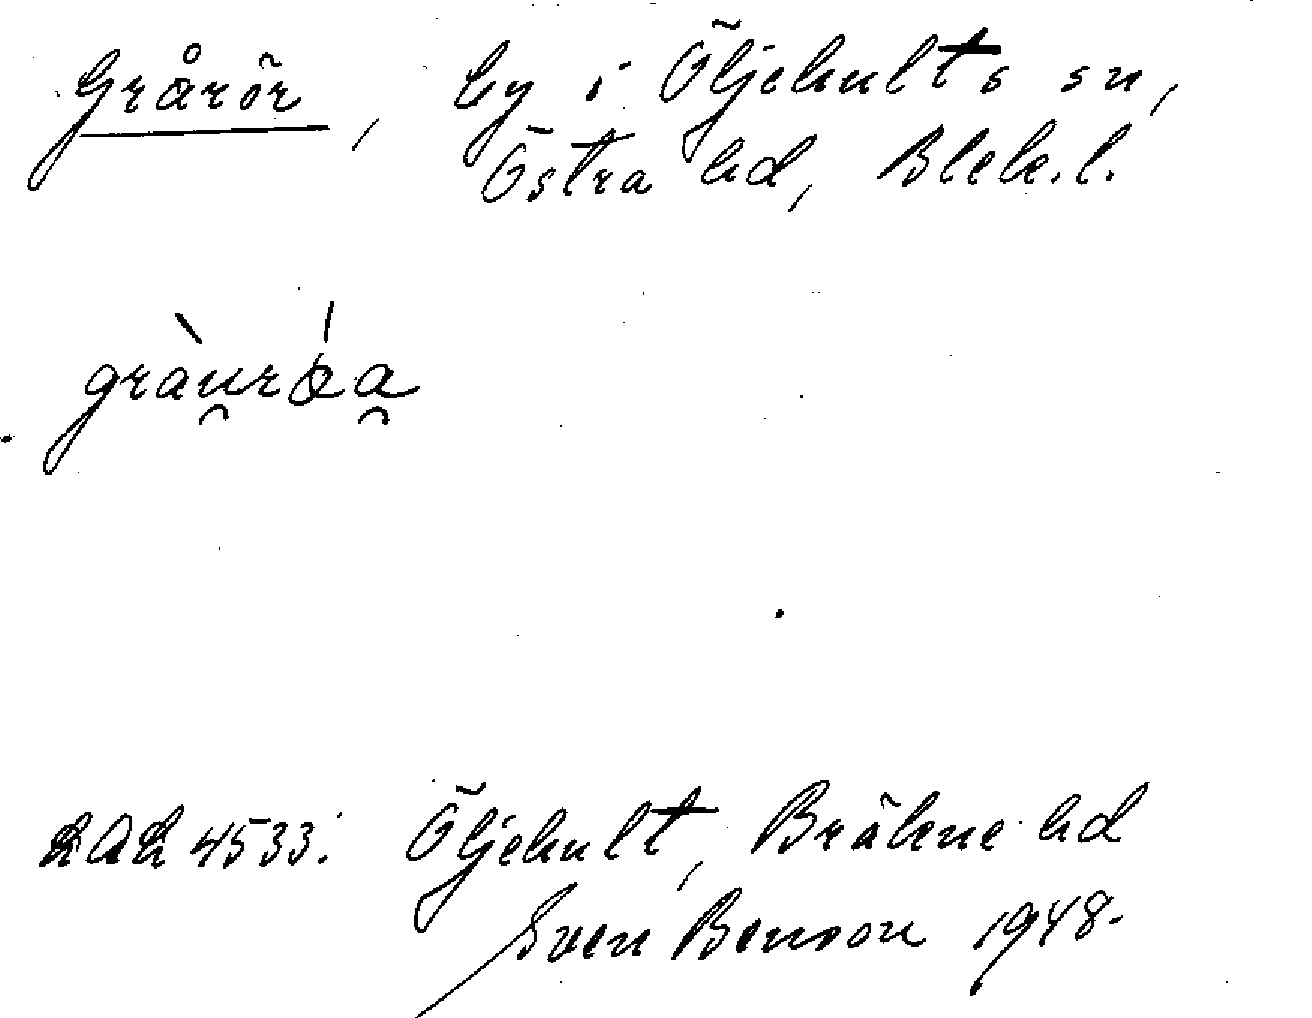 Grårör, by i Öljehults sn,
Östra hd, Blek.l.
4533. Öljehult, Bräkne hd
Sven Benson 1948.